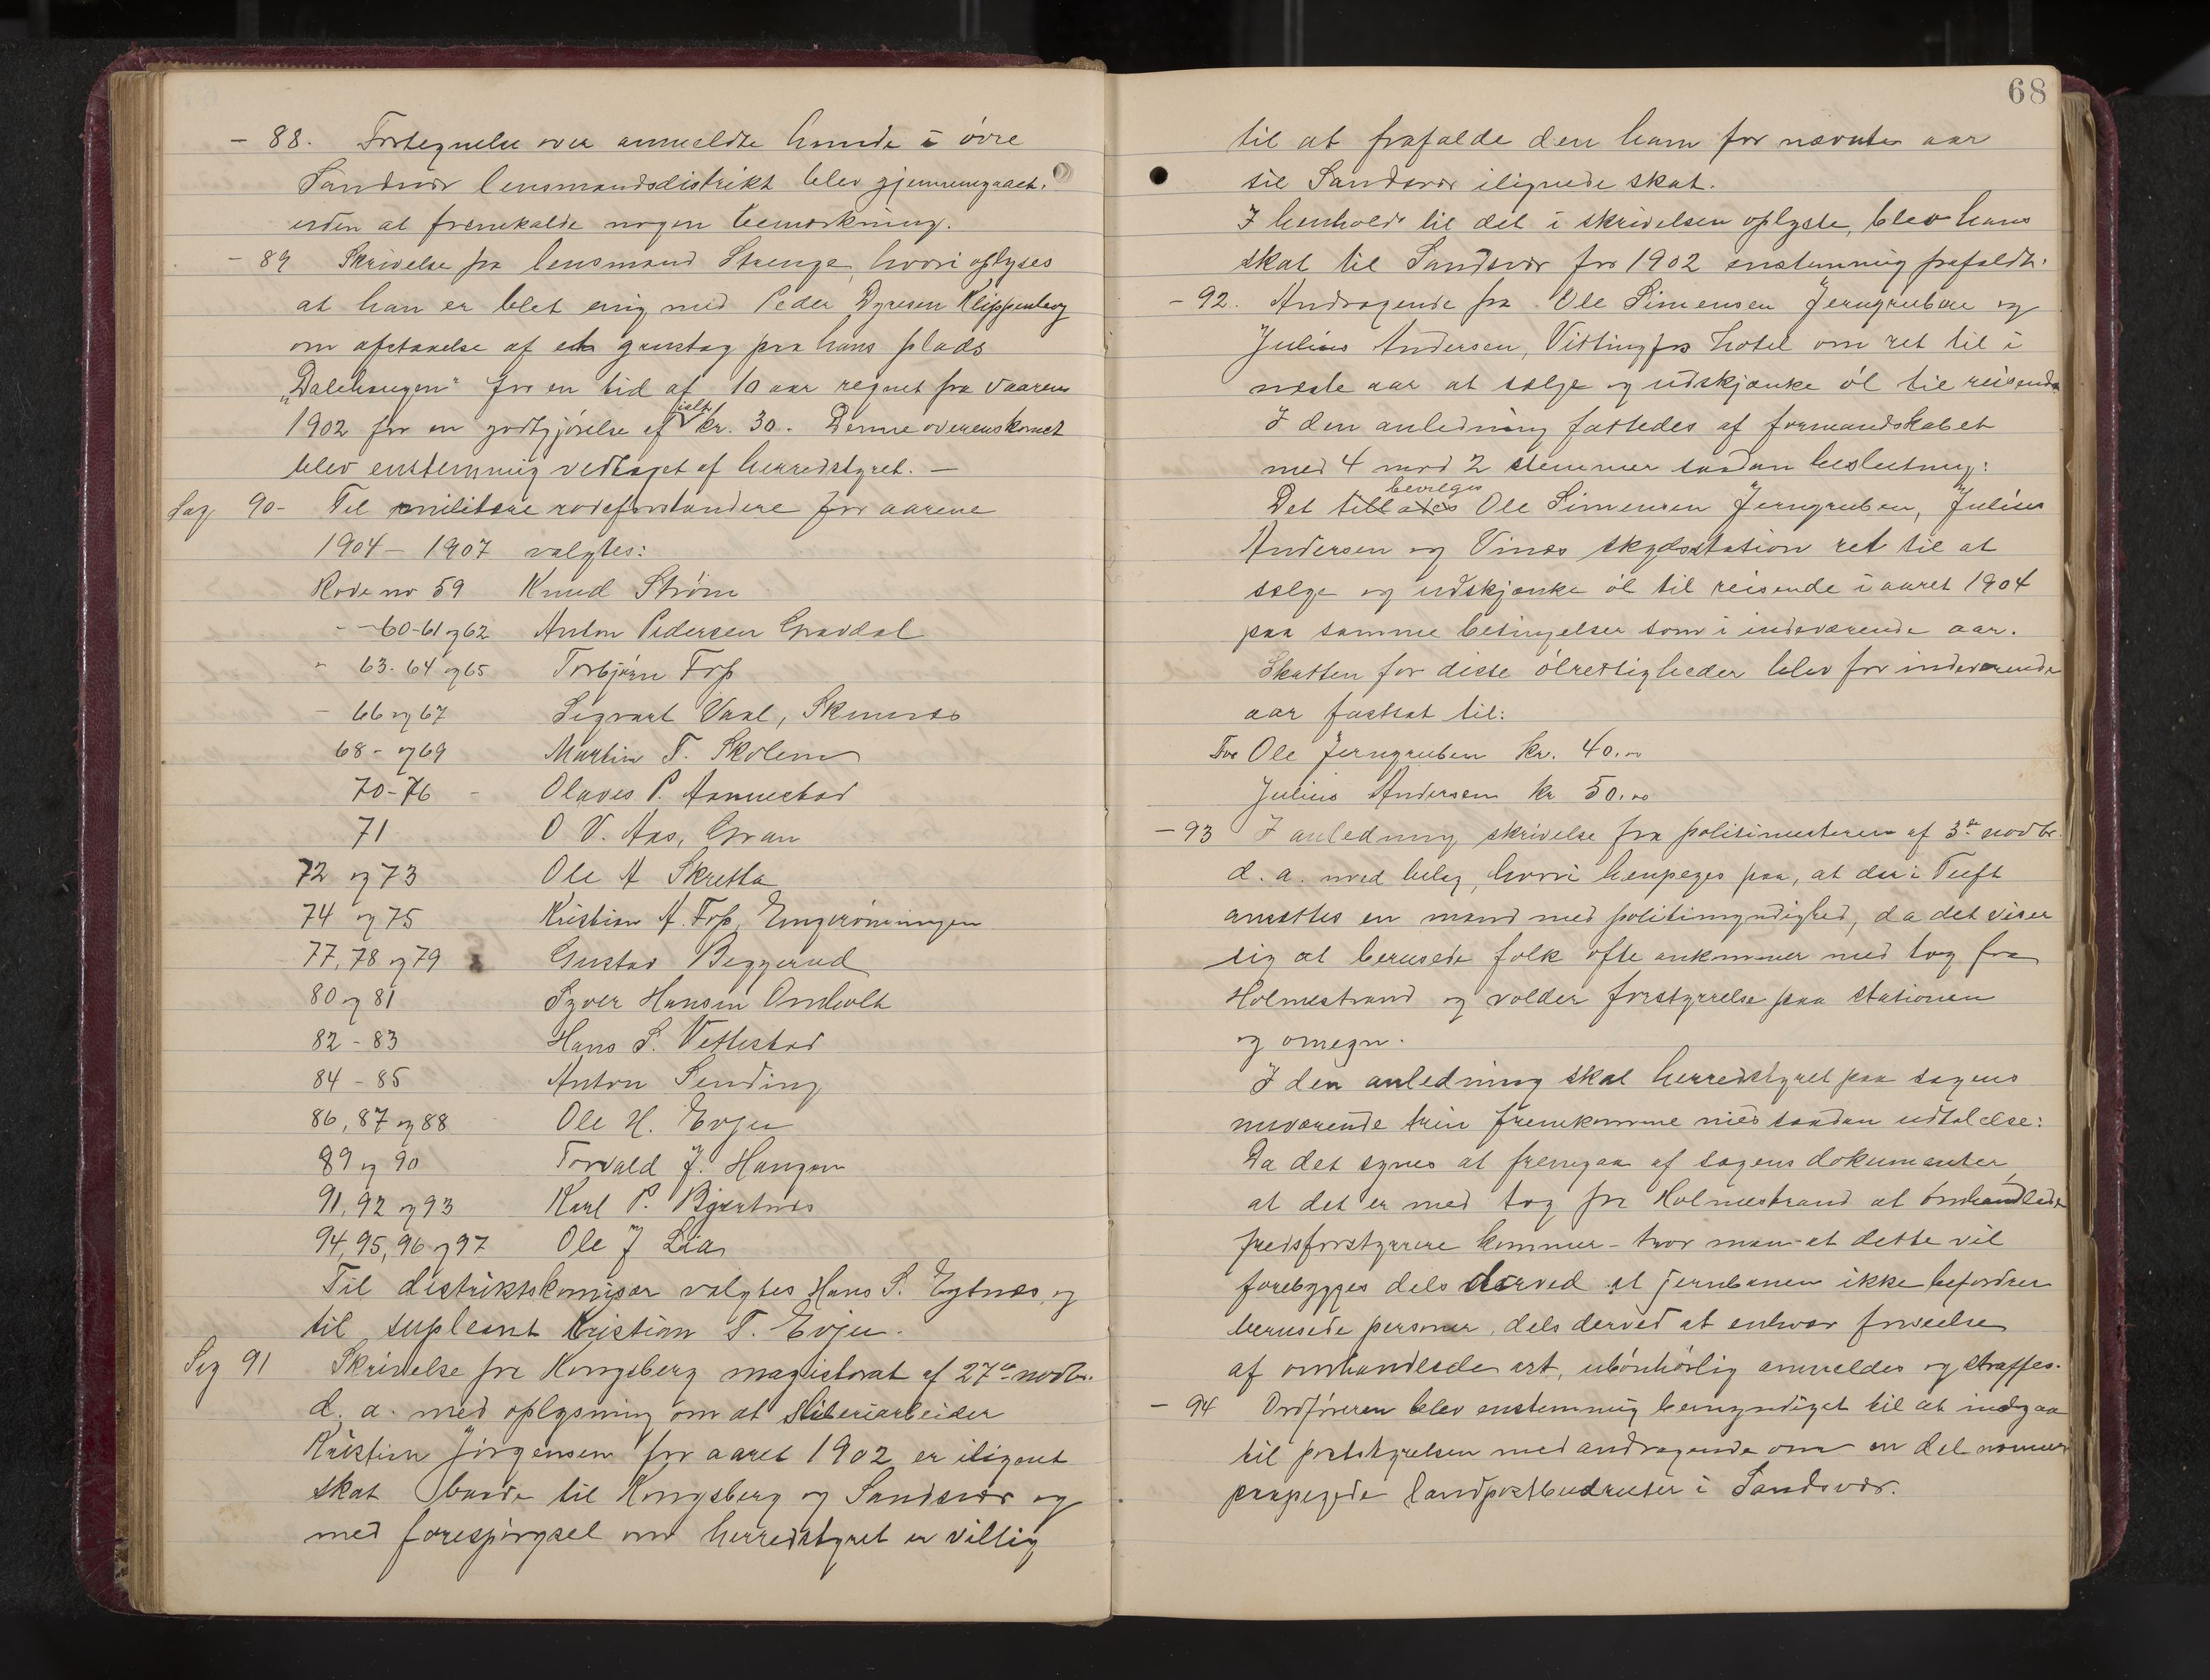 - 88. Fortegnelse over anmeldte hunde i övre
Sandsvær lensmandsdistrikt blev gjennemgaaet.
uden at fremkalde nogen bemærkning.
- 89 Skrivelse fra lensmand Strenge, hvori oplyses
at han er blet enig med Peder Dyresen Klippenberg
om afstaaelse af et grustag fra hans plads
„Dalehaugen" for en tid af 10 aar regnet fra vaaren
1902 for en godtgjörelse af ialt kr. 30. Denne overenskomst
blev enstemmig vedtaget af herredstyret. —
Sag 90- Til militære rodeforstandere for aarene
1904 - 1907 valgtes:
Rode no 59 Knud Ström
- - 60-61 og 62 Anton Pedersen Gravdal
" 63-64 og 65 Torbjörn Foss
- 66 og 67 Sigvart Vaal, Skimnes
68 - og 69 Martin T. Skolem
70-76 - Olaves P. Aannestad
71 O V. Aas, Gran
72 og 73 Ole A Skretta
74 og 75 Kristian A. Foss, Engerönningen
77, 78 og 79 Gustav Beggerud
80 og 81 Syver Hansen Omholt
82 - 83 Hans S. Vettestad
84 - 85 Anton Sending
86, 87 og 88 Ole H. Evju
89 og 90 Torvald J. Haugen
91, 92 og 93 Karl P. Bjertnes
94, 95, 96 og 97 Ole J Lia
Til distriktskomisær valgtes Hans S. Eftnæs, og
til supleant Kristian T. Evju.
Sag 91 Skrivelse fra Kongsberg magistrat af 27de novbr.
d. a. med oplysning om at sliberiarbeider
Kristian Jörgensen for aaret 1902 er ilignet
skat baade til Kongsberg og Sandsvær og
med forespörgsel om herredstyret er villig
68
til at frafalde den ham for nævnte aar
til Sandsvær ilignede skat.
I henhold til det i skrivelsen oplyste, blev hans
skat til Sandsvær for 1902 enstemmig frafaldt.
- 92. Andragende fra Ole Simensen Jerngruben og
Julius Andersen, Vittingfos hotel om ret til i
næste aar at sælge og udskjænke öl til reisende
I den anledning fattedes af formandskabet
med 4 mod 2 stemmer saadan beslutning:
bevilges
Det tillades Ole Simensen Jerngruben, Julius
Andersen og Vinæs skydsstation ret til at
sælge og udskjænke öl til reisende i aaret 1904
paa samme betingelser som i indeværende aar.
Skatten for disse ölrettigheder blev for indeværende
aar fastsat til:
For Ole Jerngruben kr. 40.00
Julius Andersen kr 50.00
- 93 I anledning skrivelse fra politimesteren af 3de novbr.
d. a. med bilag, hvori henpeges paa, at der i Tuft
ansættes en mand med politimyndighed, da det viser
sig at berusede folk ofte ankommer med tog fra
Holmestrand og volder forstyrrelse paa stationen
og omegn.
I den anledning skal herredstyret paa sagens
nuværende trin fremkomme med saadan udtalelse:
Da det synes at fremgaa af sagens dokumenter
at det er med tog fra Holmestrand at omhandlede
fredsforstyrrere kommer - tror man at dette vil
forebygges dels derved at jernbanen ikke befordrer
berusede personer, dels derved at enhver forseelse
af omhandlede art, ubönhörlig anmeldes og straffes.
- 94 Ordföreren blev enstemmig bemyndiget til at indgaa
til poststyrelsen med andragende om en del nærmere
paapegede landpostbudruter i Sandsvær.